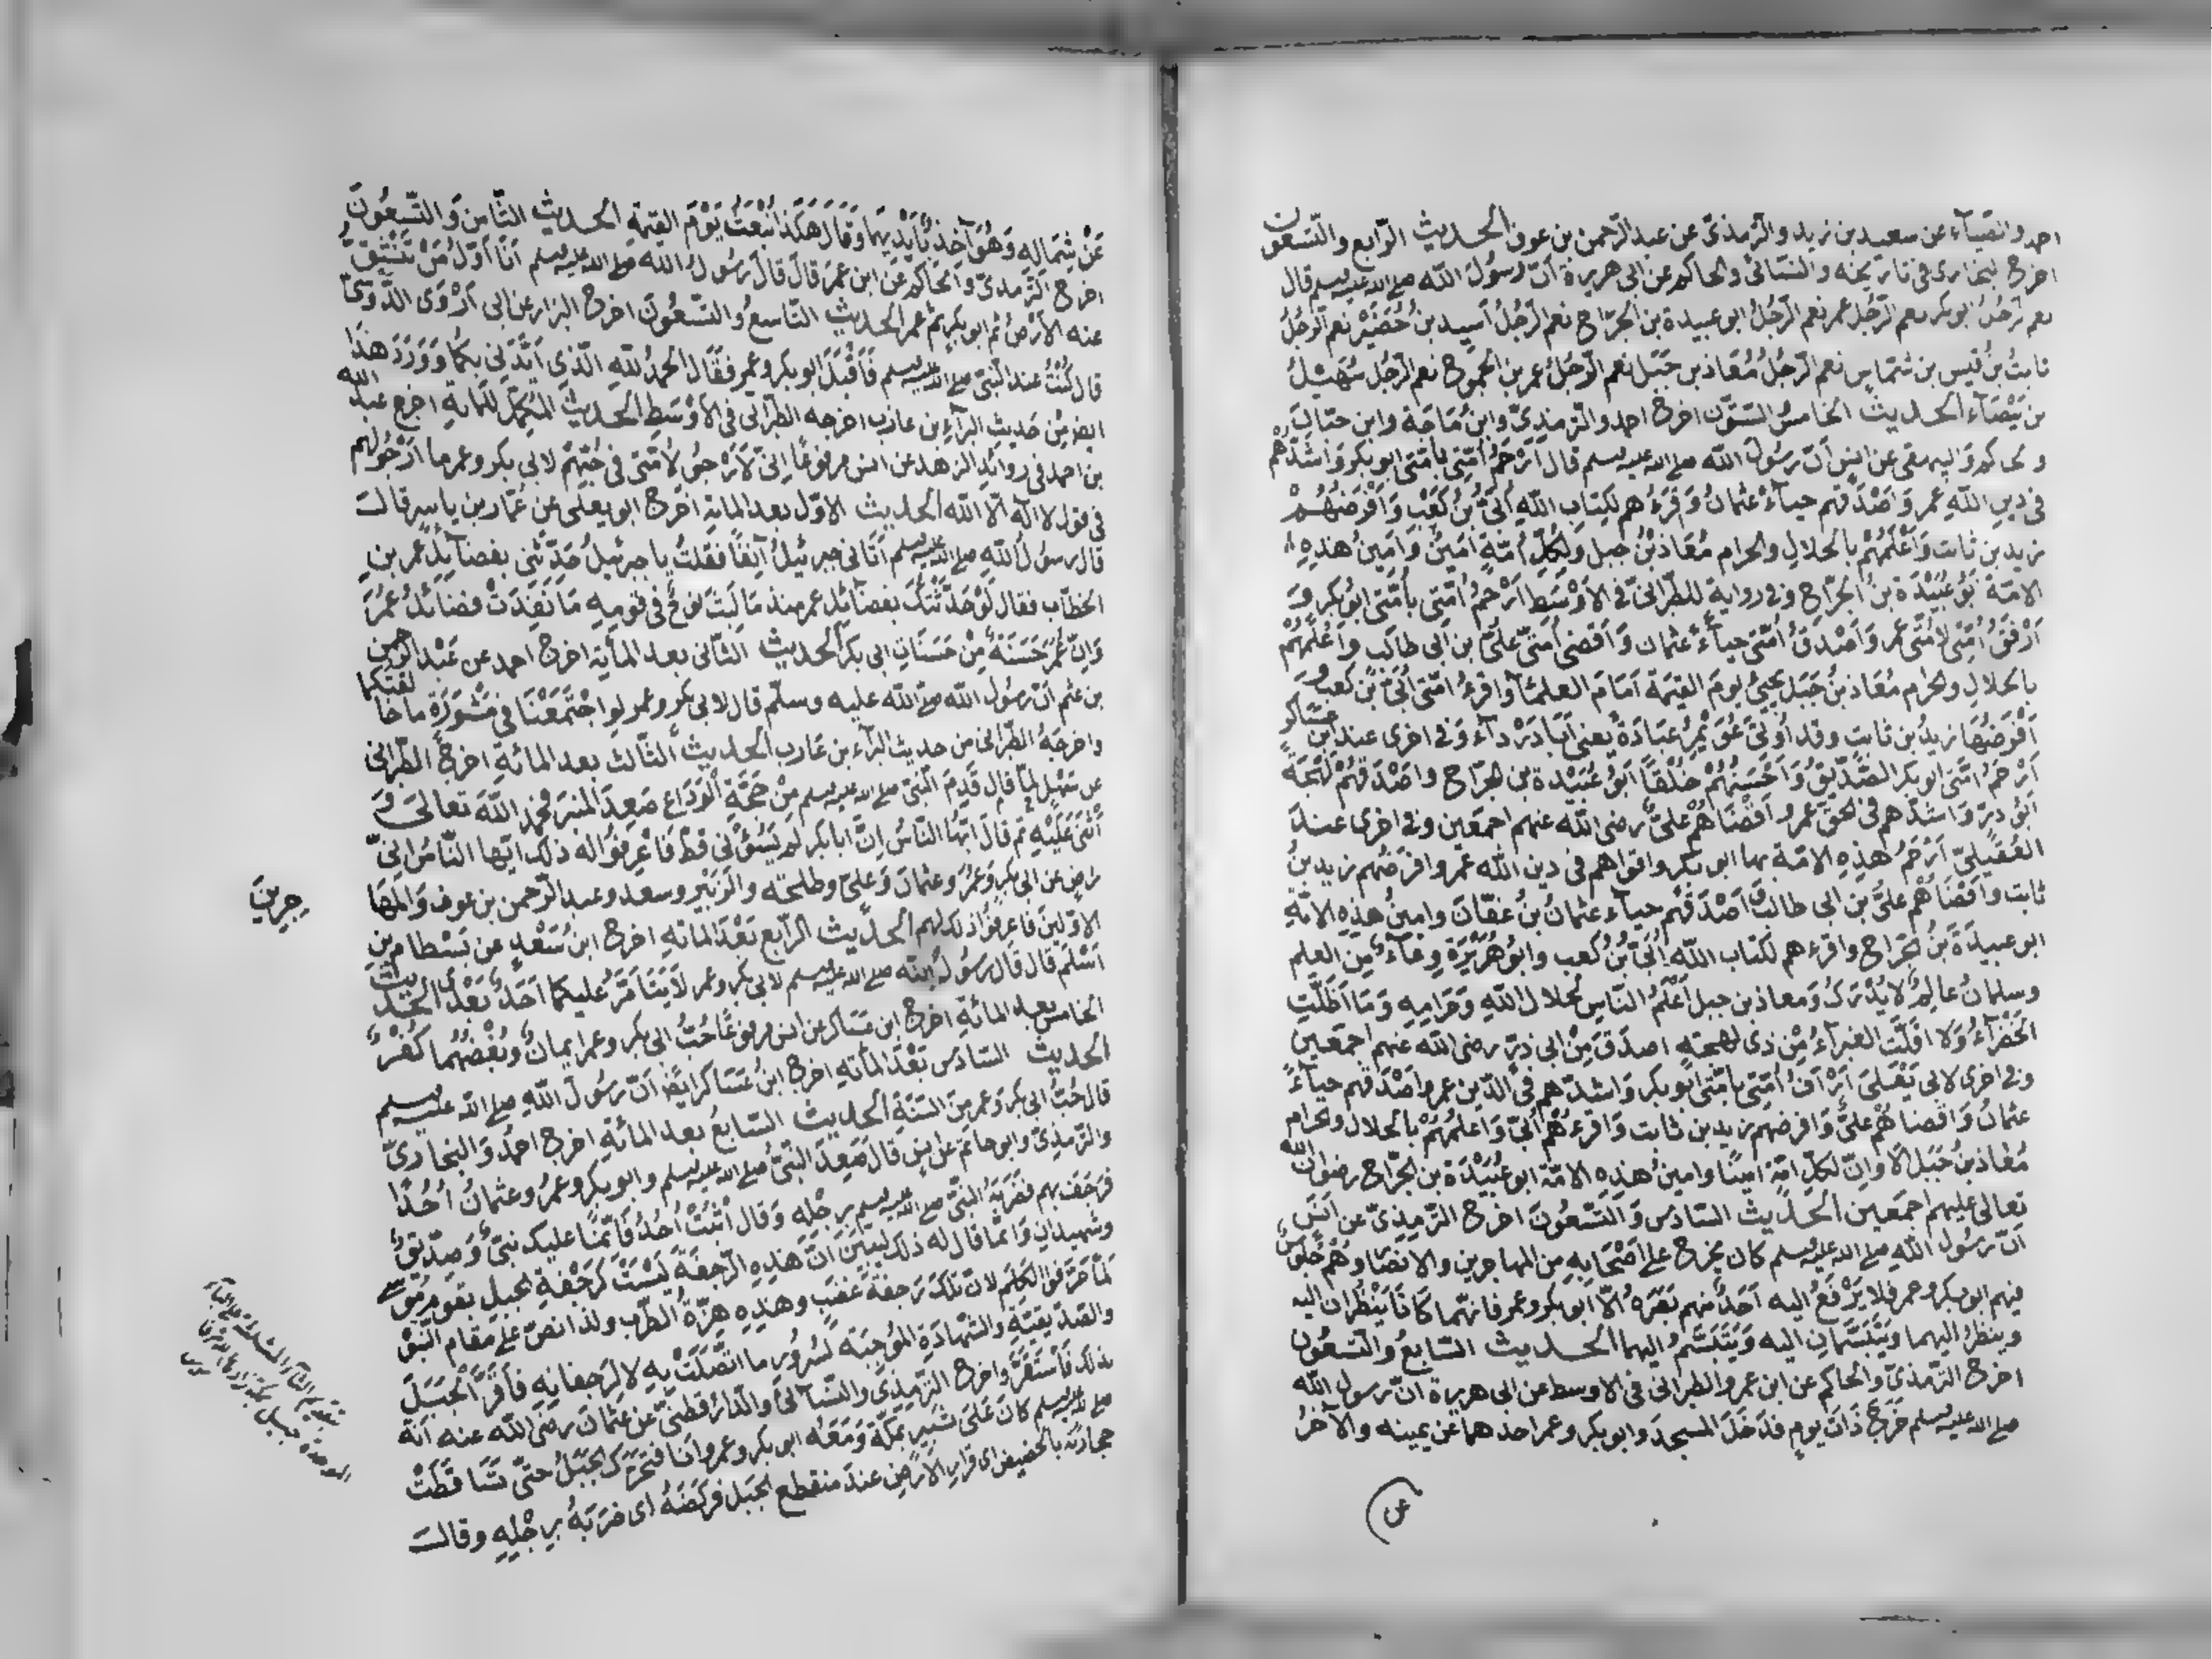 احمد والضياء عن سعيد بن زيد والترمذىّ عن عبد الرّحمن بن عوف الحديث الرّابع والتّسعون
اخرج البخارى فى تاريخه والنسائى والحاكم عن ابى هريرة انّ رسُولَ اللّه صلى الله عليه وسلم قال
نعم الرّجُلُ ابو بكر نعم الرّجُل عمر نعم الرّجُلُ ابو عبيدة بن الجرّاح نعم الرّجُلُ اُسيد بنُ حُضَيْر نعم الرّجُلُ
ثابتُ بنُ قيس بن شمّاس نعم الرّجُلُ مُعَاذ بن جَبَل نعم الرّجُلُ عمر بن الجموح نعم الرّجُل سُهَيْلُ
بن بَيْضَآء الحديث الخامسُ والتسعون اخرج احمد والترمذىّ وابنُ مَاجَة وابن حبّان
والحاكم والبيهقى عن انس انّ رسُولَ اللّه صلى الله عليه وسلم قال اَرْحَمُ اُمّتِى باُمّتى ابو بكر وَاَشَدُّهُمْ
فى دين اللّهِ عمر وَاَصْدَقُهم حيآءً عثمانُ وَاَقرَءُهم لكِتابِ اللّهِ اُبَىُّ بنُ كَعْب وَاَفْرَضُهُمْ
زيد بن ثابت وَاَعْلَمُهُمْ بالحلالِ والحرام مُعَاذ بْنُ جبل وَلِكُلِّ اُمّةٍ اَمِينٌ وَاَمِينُ هٰذِهِ
الامّةِ اَبُو عُبَيْدَة بنُ الجرّاح وفى رواية للطّبرانىّ فى الاَوْسَطِ اَرْحَمُ اُمّتِى باُمّتى ابُو بكر وَ
اَرْفَقُ اُمّتِى لاُمّتى عمر وَاَصْدقُ اُمّتى حيآءً عثمان وَاَقضى اُمّتى عَلىُّ بن ابى طالب وَاَعْلَمُهُمْ
بالحلالِ والحرام مُعَاذ بنُ جَبَل يَجِىُٔ يَومَ القيمَة اَمَامَ العلمآء وَاقرءُ اُمّتى اُبَىُّ بنُ كعب وَ
اَفْرَضُهَا زيدُ بن ثابت وقد اُوتىَ عُوَيْمِرُ عبَادَةً يعنى اَبَا دَرْدَآء وَفى اخرى عند ابن عساكر
اَرْحَمُ اُمّتى ابو بكر الصّدّيقُ وَاَحْسَنُهُمْ خُلُقًا اَبُو عُبَيْدة بن الجرّاح وَاَصْدَقُهُمْ لَهْجَةً
اَبُو ذرّ وَاَشدّهم فى الحقّ عمر وَاَقْضَاهُمْ علىٌّ رضى اللّه عنهم اجمعَين وفى اخرى عندَ
العُقَيْلىّ اَرْحَمُ هٰذِهِ الامّة بها ابو بكر واقواهم فى دين اللّه عمر وافرَضُهم زيد بنُ
ثابت واَقضَاهُمْ علىُّ بن ابى طالب وَاَصْدَقُهُمْ حيآءً عثمانُ بنُ عَفّانَ وامينُ هٰذِهِ الامّةِ
ابو عبيدَة بنُ الجرّاح واقرءهم لكتاب اللّه اُبَىُّ بنُ كعب وابُو هُرَيْرَة وِعَآءٌ مِنَ العلم
وسلمانُ عالِمٌ لَا يُدْرَكُ وَمعاذ بن جبل اَعْلَمُ النّاسِ بحلال اللّهِ وَحَرَامِهِ وَمَا اَظَلّتِ
الخَضْرَآءُ وَلَا اَقلّتِ الغبرَآءُ مِنْ ذى لهجةٍ اصدَق مِنْ ابى ذرّ رضى اللّه عنهم اجمَعين
وفى اخرى لابى يَعْلى اَرْاَفُ اُمّتِى باُمّتى ابو بكر وَاشدّهم فى الدّين عمر واَصْدقهم حيآءً
عثمانُ وَاَقضاهُمْ علىٌّ وَافرضهم زيد بن ثابت وَاقرءُهُمْ اُبَىٌّ وَاعلمُهُمْ بالحَلَال والحرام
مُعَاذ بنُ جَبَل اَلا وانّ لكلّ امّةٍ امينًا وامينُ هٰذِهِ الامّة ابو عُبَيْدَة بن الجرّاح رضوان اللّه
تعالى عليهم اجمَعينَ الحديث السّادس وَالتّسْعُونَ اخرج التّرْمِذِىّ عن اَنَسٍ
انّ رسُولَ اللّهِ صلى الله عليه وسلم كان يخرج على اَصْحَابِهِ من المهاجرين والانصَار وَهُمْ جُلُوسٌ
فيهم ابو بكر وعمر فلا يَرْفَعُ اليه اَحَدٌ منهم بَصَرَهُ الّا ابو بكر وعمر فانّهما كَانَا يَنْظُرَان اليه
وينظرُ اليهما وَيَتَبَسّمَانِ اليه وَيَتَبَسَّمُ اليهما الحديث السّابعُ والتّسعُون
اخرج الترّمذىّ والحاكم عن ابن عمر والطبرانى فى الاوسط عن ابى هريرة انّ رسول اللّه
صلى الله عليه وسلم خَرَجَ ذَاتَ يومٍ فدَخَلَ المسجدَ وابو بكر وعمر احدهما عن يمينه والآخرُ
عَنْ شِمَالِهِ وَهُوَ آخِذٌ بِاَيْدِيهما وَقَالَ هَكَذا نُبْعَثُ يَوْمَ القيمَةِ الحديث الثّامن وَالتّسِعُونَ
اخرج الترمذىّ والحاكم عن ابن عمرَ قالَ قالَ رَسُولُ اللّه صلى الله عليه وسلم اَنَا اَوّلُ مَنْ تَنْشَقُّ
عنه الاَرْضُ ثم ابو بكر ثم عمر الحديث التّاسعُ والتّسْعُونَ اخرج البزار عن ابى اَرْوَى الدَّوْسىّ
قال كُنْتُ عند النّبىّ صلى الله عليه وسلم فَاَقْبَلَ ابو بكر وعمر فقَالَ الحمدُ للّهِ الّذِى اَيّدَنى بكُما وَوَرَدَ هٰذَا
ايضا مِنْ حَديث البَرآءِ بن عازب اخرجه الطّبرانى فى الاَوْسَطِ الحَديث المُكمّل للمَائة اخرج عبد اللّه
بن احمد فى زوائدِ الزّهد عن انس مرفُوعًا انّى لَاَرْجُو لاُمّتى فى حُبّهِمْ لابى بكر وعمر ما اَرْجُو لَهُم
فى قول لا الٰه الّا اللّه الحديث الاوّل بعد المائةِ اخرج ابو يعلى عن عَمّار بن ياسرٍ قالَ
قال رسُولُ اللّهِ صلى الله عليه وسلم اَتَانى جبرئيلُ آنِفًا فَقلتُ يا جبرئيلُ حَدّثنى بفضآئلِ عمر بنِ
الخطآب فقال لَوْ حَدَّثْتُكَ بفضَائِل عمر منذ مَا لَبِثَ نوحٌ فى قَومِهِ مَا نَفِدَتْ فضائلُ عمرَ
وَانّ عُمَرَ حَسَنَةٌ مِنْ حَسَنَاتِ ابى بكر الحديث الثّانى بعد المأيةِ اخرج احمد عن عَبْد الرحمٰن
بن غنم انّ رسُولَ اللّه صلى اللّه عليه وسلّم قال لابى بكر وعمر لو اجْتَمَعْتُمَا فى مَشْوَرَةٍ ما خالفتكما
واخرجَهُ الطّبرانى من حديث البرآء بن عَازب الحديث الثّالث بعد المائةِ اخرج الطّبرانى
عن سَهْلٍ لمّا قال قَدِمَ النّبىّ صلى الله عليه وسلم مِنْ حَجّةِ الوَدَاع صَعِدَ المنبرَ فحمد اللّه تعالىَ وَ
اَثْنى عَلَيْهِ ثم قالَ اَيّها النّاسُ اِنَّ ابَا بكر لَم يَسُؤْنى قطُّ فَاعْرِفُوا له ذلك ايّها النّاسُ انّى
رَاضٍ عن ابى بكر وعُمَرَ وعثمانَ وَعلىّ وطلحَةَ والزّبَيْرِ وسعد وعبد الرّحمٰن بن عوف وَالمُهَا
جِرِينَ
الاوّلينَ فَاعرِفُوا ذلكَ لهم الحديث الرّابع بَعْدَ المائةِ اخرج ابنُ سَعْدٍ عن بَسْطام بنِ
اَسْلَم قالَ قالَ رسُولُ اللّه صلى الله عليه وسلم لابى بكر وعمر لَا يَتَأمّرُ عليكما اَحَدٌ بَعْدى الحديث
الخامس بعد المائةِ اخرج ابن عساكر عن انس مرفوعًا حُبُّ ابى بكر وعمر ايمانٌ وَبُغْضُهُما كُفْرٌ
الحديث السّادس بَعْدَ المأئةِ اخرج ابنُ عَسَاكر ايضًا انّ رسُولَ اللّهِ صلى اللّه عليه وسلم
قالَ حُبُّ ابى بكر وَعمر مِنَ السّنّةِ الحديث السّابعُ بعد المائةِ اخرج احمدُ وَالبخَارىّ
والترّمذىّ وابو حاتم عن انس قالَ صَعِدَ النّبىُّ صلى الله عليه وسلم وابو بكر وعمرُ وعثمانُ اُحُدًا
فرَجَفَ بهم فضَرَبَهُ النّبىّ صلى الله عليه وسلم برِجْلِهِ وَقال اُثْبُتْ اُحُدُ فَانّما عليك نبىٌّ وَصِدّيقٌ
وشهيدانِ وَانّما قال له ذلك ليُبَيّنَ انّ هٰذِهِ الرّجفَةَ لَيْسَتْ كَرَجْفَةِ الجبلِ بقوم مُوسٰى
لَمّا حَرّفوا الكلمَ لانّ تلك رَجفَة غَضَبٍ وهٰذِهِ هزّةُ الطّرب ولذا نصّ على مَقام النّبوّة
والصّدّيقيّةِ والشّهادَةِ المُوجِبَة لسُرُورِ ما اتّصَلَتْ بِهِ لا لرَجفانِهِ فَاَقرَّ الجبَلَ
بذلك فَاسْتَقَرَّ واخرج التّرمِذِىّ والنّسآئىّ والدّارقطنىّ عن عثمانَ رضى اللّه عنه انّه
صلى الله عليه وسلم كانَ عَلَى ثَبِيرِ بمَكّةَ وَمَعَه ابو بكر وعمر وانَا فتَحرّكَ الجَبَلُ حتّى تَسَاقَطَتْ
حجارَتُهُ بالحَضيض اى قرار الاَرْضِ عندَ منقطع الجبل فركَضَهُ اى ضَرَبَهُ برِجْلِهِ وقالَ